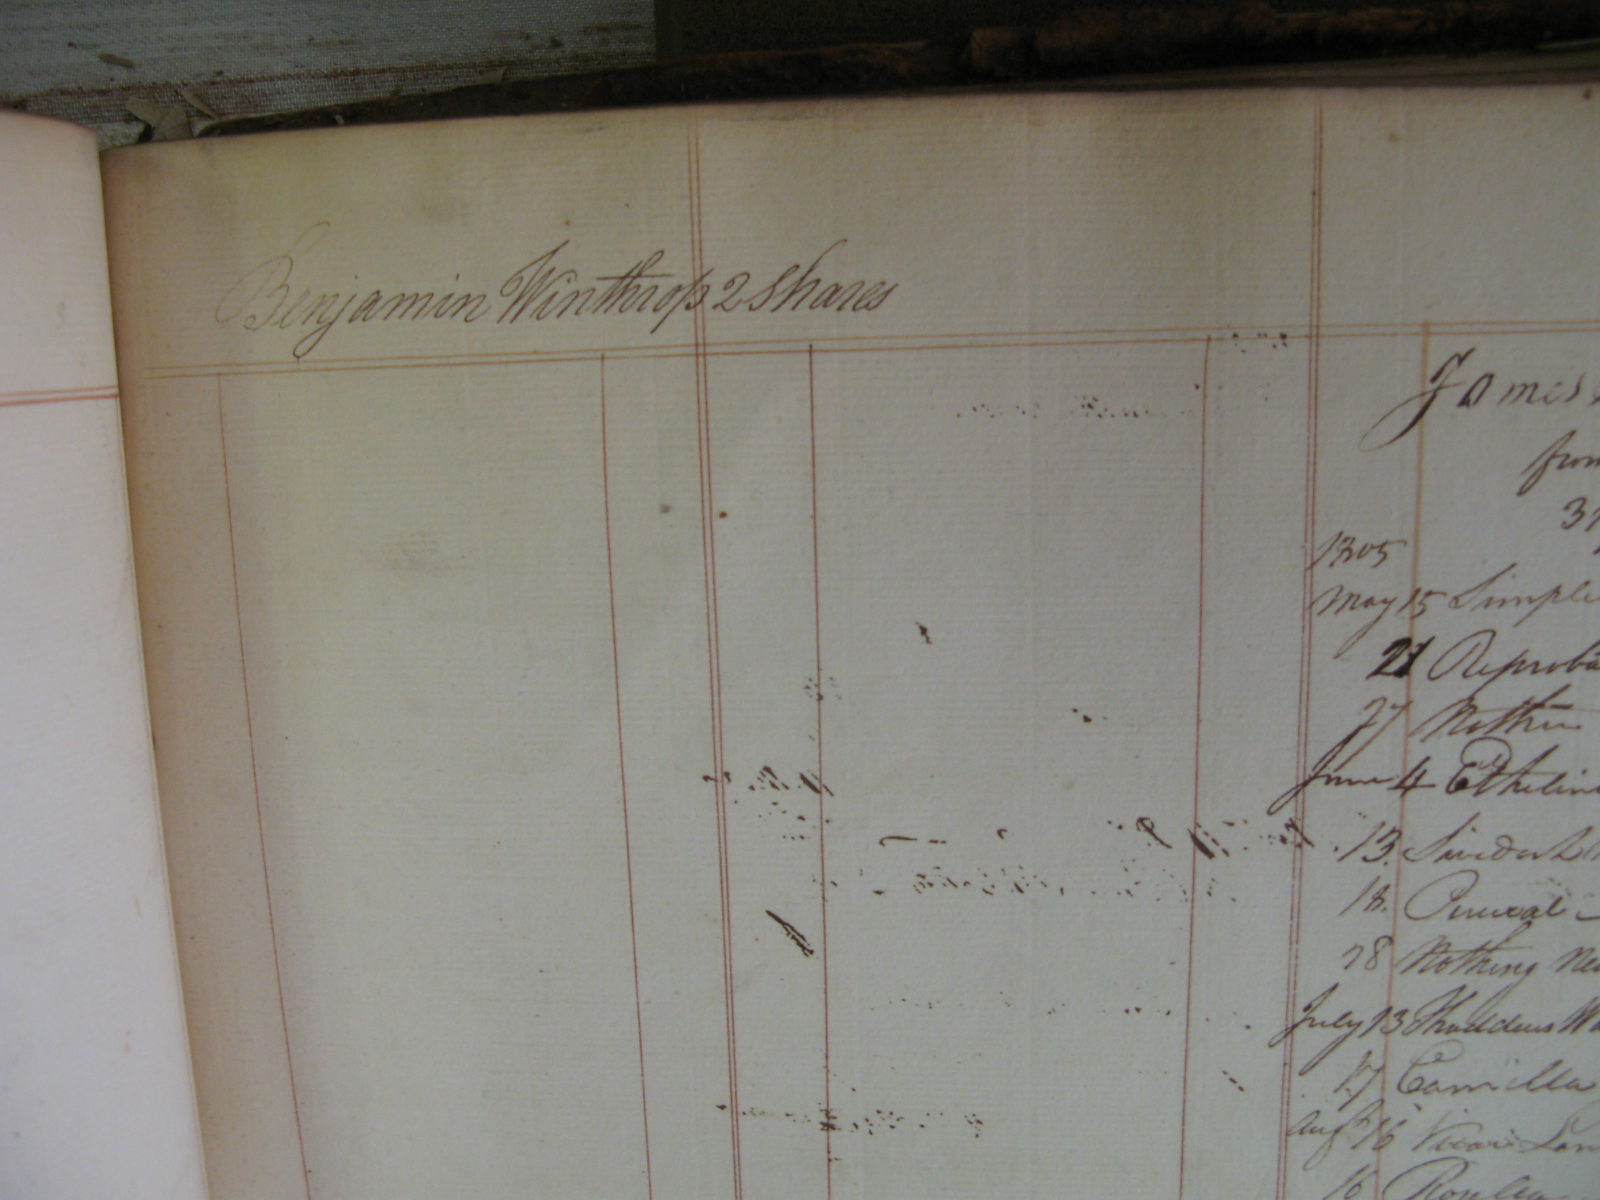 Benjamin Winthrop 2 Shares
James
from
1805
May 15 Simple
21 Reproba
27 Nothin
June 4 Ethelin
13.
18. Percival
28 Nothing New
July 13 Thaddeus Wa
17 Camilla
Augt 16 Vicar Lan
16